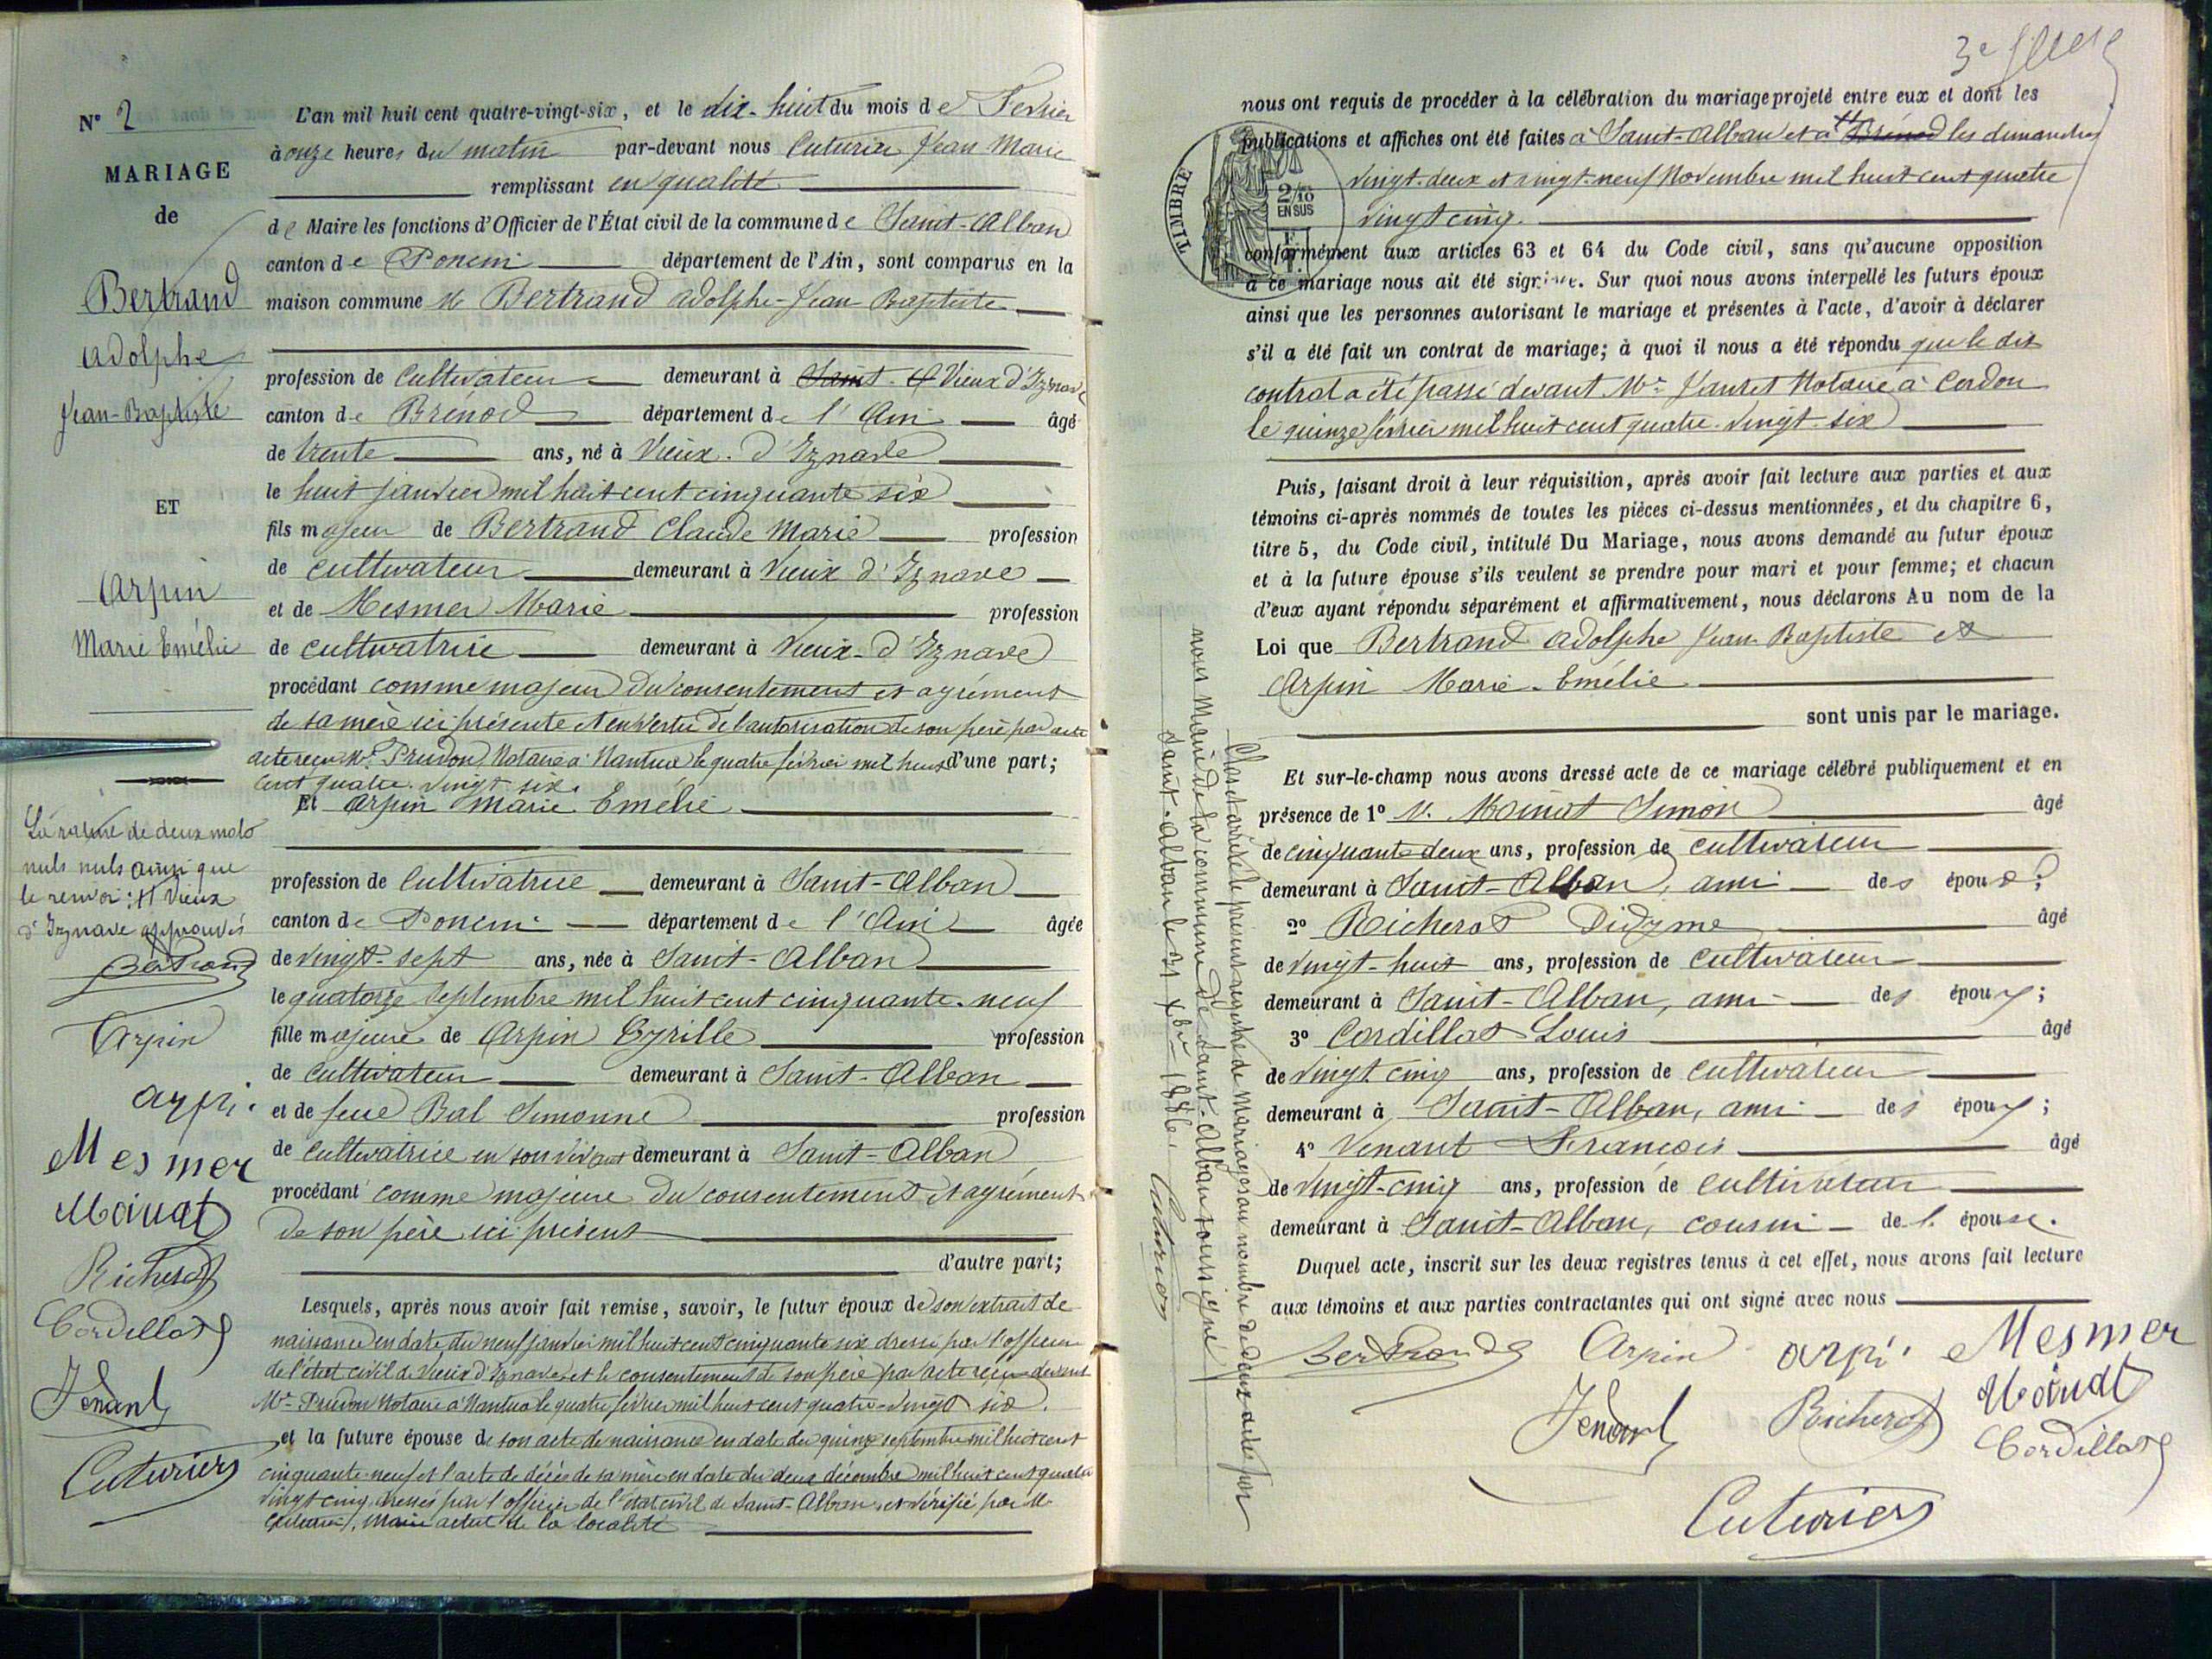 N° 2
MARIAGE
de
Bertrand
Adolphe
Jean-Baptiste
ET
Arpin
Marie Emélie
La rature de deux mots
nuls nuls ainsi que
le renvoi : H Vieux
d'Iznave approuvés
Bertrand
Arpin
arpi.
Mesmer
Moinat
Richerot
Cordillat
Venant
Cuturier
L'an mil huit cent quatre-vingt-six, et le dix-huit du mois de Février
à onze heures du matin par-devant nous Cuturier Jean Marie
remplissant en qualité
de Maire les fonctions d'Officier de l'État civil de la commune de Saint-Alban
canton de Poncin département de l'Ain, sont comparus en la
maison commune M Bertrand Adolphe-Jean-Baptiste
profession de cultivateur demeurant à Saint-A Vieux d'Iznave
canton de Brénod département de l'Ain âgé
de trente ans, né à Vieux-d'Iznave
le huit janvier mil huit cent cinquante six
fils majeur de Bertrand Claude Marie profession
de cultivateur demeurant à Vieux d'Iznave
et de Mesmer Marie profession
de cultivatrice demeurant à Vieux-d'Iznave
procédant comme majeur du consentement et agrément
de sa mère ici présente et en vertu de l'autorisation de son père par acte
acte reçu Me Prudon Notaire à Nantua le quatre février mil huit d'une part;
cent quatre-vingt six.
Et Arpin Marie Emélie
profession de cultivatrice demeurant à Saint-Alban
canton de Poncin département de l'Ain âgée
de vingt-sept ans, née à Saint-Alban
le quatorze septembre mil huit cent cinquante-neuf
fille majeure de Arpin Cyrille profession
de cultivateur demeurant à Saint-Alban
et de feue Bal Simonne profession
de cultivatrice en son vivant demeurant à Saint-Alban
procédant comme majeure du consentement et agrément
de son père ici présent
d'autre part;
Lesquels, après nous avoir fait remise, savoir, le futur époux de son extrait de
naissance en date du neuf janvier mil huit cent cinquante six dressé par l'officier
de l'état civil de Vieux d'Iznave, et le consentement de son père par acte reçu devant
Me Prudon Notaire à Nantua le quatre février mil huit cent quatre-vingt six.
et la future épouse de son acte de naissance en date du quinze septembre mil huit cent
cinquante-neuf et l'acte de décès de sa mère en date du deux décembre mil huit cent quatre
vingt cinq dressés par l'officier de l'état civil de Saint-Alban, et vérifié par M
Cuturier, Maire actuel de la localité
nous ont requis de procéder à la célébration du mariage projeté entre eux et dont les
publications et affiches ont été faites à Saint-Alban et à H Brénod les dimanches
vingt-deux et vingt-neuf Novembre mil huit cent quatre
vingt cinq.
TIMBRE
2/10
EN SUS
conformément aux articles 63 et 64 du Code civil, sans qu'aucune opposition
à ce mariage nous ait été signifiée. Sur quoi nous avons interpellé les futurs époux
ainsi que les personnes autorisant le mariage et présentes à l'acte, d'avoir à déclarer
s'il a été fait un contrat de mariage; à quoi il nous a été répondu que le dit
contrat a été passé devant Me Notaire à Cerdon
le quinze février mil huit cent quatre-vingt-six
Puis, faisant droit à leur réquisition, après avoir fait lecture aux parties et aux
témoins ci-après nommés de toutes les pièces ci-dessus mentionnées, et du chapitre 6,
titre 5, du Code civil, intitulé Du Mariage, nous avons demandé au futur époux
et à la future épouse s'ils veulent se prendre pour mari et pour femme; et chacun
d'eux ayant répondu séparément et affirmativement, nous déclarons Au nom de la
Loi que Bertrand Adolphe Jean-Baptiste et
Arpin Marie-Emélie
sont unis par le mariage.
Et sur-le-champ nous avons dressé acte de ce mariage célébré publiquement et en
présence de 1° M. Moinat Simon âgé
de cinquante-deux ans, profession de cultivateur
demeurant à Saint-Alban, ami des époux;
2° Richerot Didyme âgé
de vingt-huit ans, profession de cultivateur
demeurant à Saint-Alban, ami des époux;
3° Cordillat Louis âgé
de vingt cinq ans, profession de cultivateur
demeurant à Saint-Alban, ami des époux;
4° Venant François âgé
de vingt-cinq ans, profession de cultivateur
demeurant à Saint-Alban, cousin de l'épouse.
Duquel acte, inscrit sur les deux registres tenus à cet effet, nous avons fait lecture
aux témoins et aux parties contractantes qui ont signé avec nous
Bertrand Arpin arpi. Mesmer
Venant Richerot Moinat
Cordillat
Cuturier
Clos et arrêté le présent registre de Mariages au nombre de deux actes par
nous Maire de la commune de Saint-Alban soussigné
Saint-Alban le 31 Xbre 1886. Cuturier